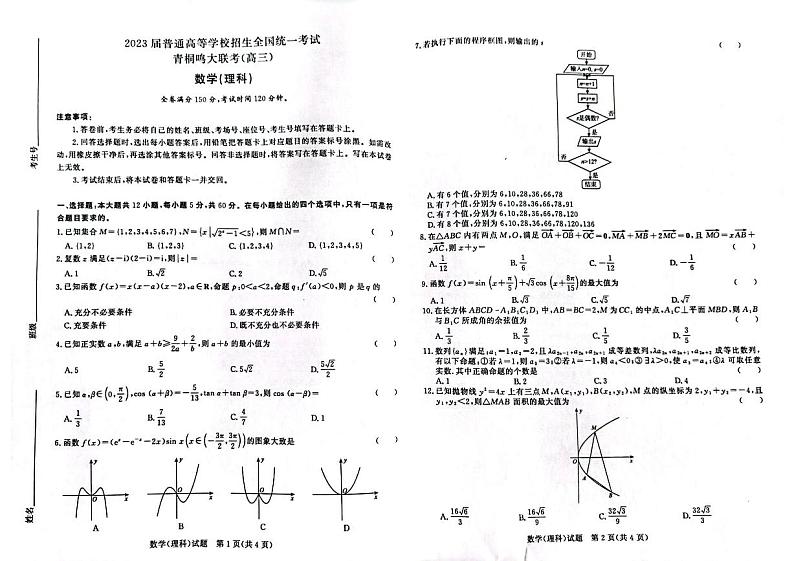 2023 届普通高等学校招生全国统一考试
青桐鸣大联考(高三)
数学(理科)
全卷满分 150 分,考试时间 120 分钟。
注意事项:
1.答卷前,考生务必将自己的姓名、班级、考场号、座位号、考生号填写在答题卡上。
2.回答选择题时,选出每小题答案后,用铅笔把答题卡上对应题目的答案标号涂黑。如需改
动,用橡皮擦干净后,再选涂其他答案标号。回答非选择题时,将答案写在答题卡上。写在本试卷
上无效。
3.考试结束后,将本试卷和答题卡一并交回。
一、选择题:本大题共 12 小题,每小题 5 分,共 60 分。在每小题给出的四个选项中,只有一项是符
合题目要求的。
1.已知集合 M={1,2,3,4,5,6,7},N={x|√(2ˣ-1)<5},则 M∩N= ( )
A.{1,2} B.{1,2,3} C.{1,2,3,4} D.{1,2,3,4,5}
2.复数 z 满足(z-i)(2-i)=i,则|z|= ( )
A.1 B.√2 C.2 D.√5
3.已知函数 f(x)=x(x-a)(x-2),a∈R,命题 p:0<a<2,命题 q:f′(a)<0,则 p 是 q 的
( )
A.充分不必要条件 B.必要不充分条件
C.充要条件 D.既不充分也不必要条件
4.已知正实数 a,b,满足 a+b≥9/2a+2/b,则 a+b 的最小值为 ( )
A.5 B.5/2 C.5√2 D.5√2/2
5.已知 α,β∈(0,π/2),cos(α+β)=-5/13,tan α+tan β=3,则 cos(α-β)= ( )
A.1/3 B.7/13 C.4/7 D.1
6.函数 f(x)=(eˣ-e⁻ˣ-2x)sin x(x∈(-3π/2,3π/2))的图象大致是 ( )
y
O
x
A
y
O
x
B
y
O
x
C
y
O
x
D
数学(理科)试题 第 1 页(共 4 页)
考生号
班级
姓名
7.若执行下面的程序框图,则输出的 s ( )
开始
输入n=0, s=0
n=n+1
s=s+n
s是偶数? 否
是
输出s
否 n>12?
是
结束
A.有 6 个值,分别为 6,10,28,36,66,78
B.有 7 个值,分别为 6,10,28,36,66,78,91
C.有 7 个值,分别为 6,10,28,36,66,78,120
D.有 8 个值,分别为 6,10,28,36,66,78,120,136
8.在△ABC 内有两点 M,O,满足 OA+OB+OC=0,MA+MB+2MC=0,且 MO=xAB+
yAC,则 x+y= ( )
A.1/12 B.1/6 C.-1/12 D.-1/6
9.函数 f(x)=sin(x+π/5)+√3cos(x+8π/15)的最大值为 ( )
A.1 B.√3 C.√5 D.√7
10.在长方体 ABCD-A₁B₁C₁D₁ 中,AB=BC=2,M 为 CC₁ 的中点,A₁C⊥平面 MBD,则 A₁B
与 B₁C 所成角的余弦值为 ( )
A.1/3 B.2/3 C.1/5 D.3/5
11.数列{aₙ}满足:a₁=1,a₂=2,且 λa₂ₙ₋₁,a₂ₙ,a₂ₙ₊₁ 成等差数列,λa₂ₙ,a₂ₙ₊₁,a₂ₙ₊₂ 成等比数列,
有以下命题:①若 λ=1,则 a₃=3;②若 λ=-1,则 aₙ<0;③∃λ>0,使 aₙ=aₙ;④λ 可取任意
实数.其中正确命题的个数是 ( )
A.1 B.2 C.3 D.4
12.已知抛物线 y²=4x 上有三点 M,A(x₁,y₁),B(x₂,y₂),M 点的纵坐标为 2,y₁+y₂=-4,且
y₁,y₂<2,则△MAB 面积的最大值为 ( )
y
M
O
x
A
B
A.16√6/3 B.16√6/9 C.32√3/9 D.32√3/3
数学(理科)试题 第 2 页(共 4 页)